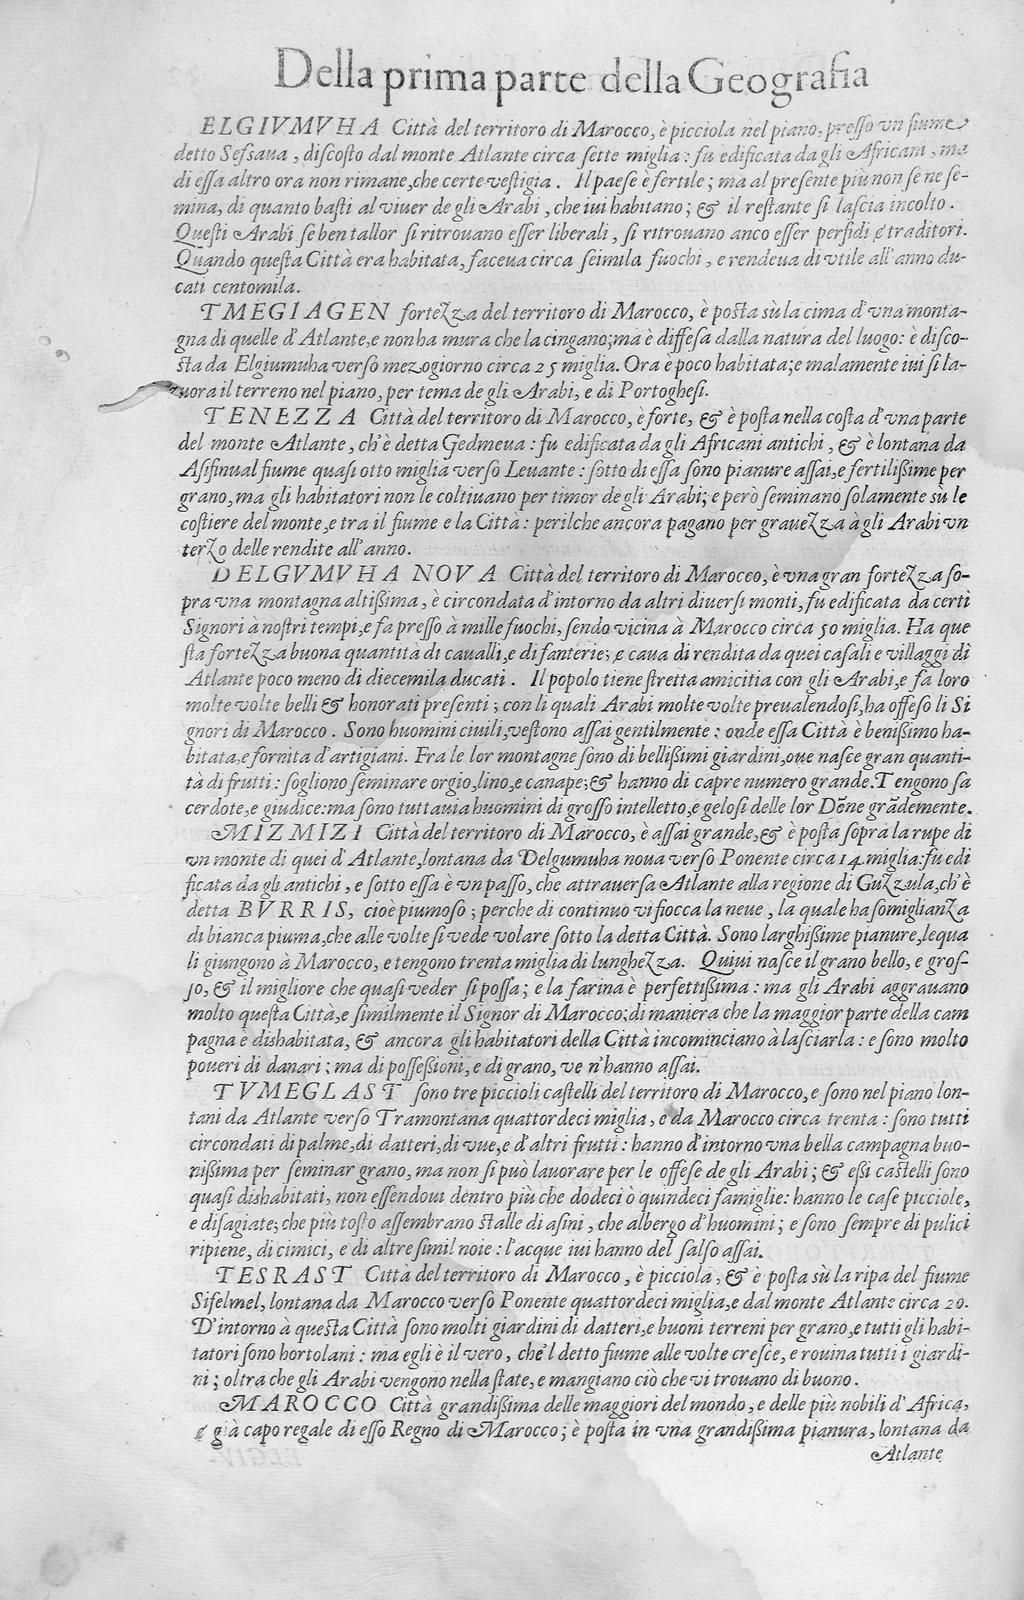 Della prima parte della Geografia
ELGIVMVHA Città del territoro di Marocco, è picciola nel piano, presso vn fiume
detto Sefsaua, discosto dal monte Atlante circa sette miglia: fu edificata da gli Africani, ma
di essa altro ora non rimane, che certe vestigia. Il paese è fertile; ma al presente più non se ne se-
mina, di quanto basti al viuer de gli Arabi, che iui habitano; & il restante si lascia incolto.
Questi Arabi se ben tallor si ritrouano esser liberali, si ritrouano anco esser perfidi e traditori.
Quando questa Città era habitata, faceua circa seimila fuochi, e rendeua di vtile all'anno du-
cati centomila.
TMEGIAGEN fortezza del territoro di Marocco, è posta sù la cima d'vna monta-
gna di quelle d'Atlante, e non ha mura che la cingano; ma è diffesa dalla natura del luogo: è disco-
sta da Elgiumuha verso mezogiorno circa 25 miglia. Ora è poco habitata; e malamente iui si la-
uora il terreno nel piano, per tema de gli Arabi, e di Portoghesi.
TENEZZA Città del territoro di Marocco, è forte, & è posta nella costa d'vna parte
del monte Atlante, ch'è detta Gedmeua: fu edificata da gli Africani antichi, & è lontana da
Asifinual fiume quasi otto miglia verso Leuante: sotto di essa sono pianure assai, e fertilissime per
grano, ma gli habitatori non le coltiuano per timor de gli Arabi; e però seminano solamente sù le
costiere del monte, e tra il fiume e la Città: perilche ancora pagano per grauezza à gli Arabi vn
terzo delle rendite all'anno.
DELGVMVHA NOVA Città del territoro di Marocco, è vna gran fortezza so-
pra vna montagna altissima, è circondata d'intorno da altri diuersi monti, fu edificata da certi
Signori à nostri tempi, e fa presso à mille fuochi, sendo vicina à Marocco circa 50 miglia. Ha que
sta fortezza buona quantità di caualli, e di fanterie; e caua di rendita da quei casali e villaggi di
Atlante poco meno di diecemila ducati. Il popolo tiene stretta amicitia con gli Arabi, e fa loro
molte volte belli & honorati presenti; con li quali Arabi molte volte preualendosi, ha offeso li Si
gnori di Marocco. Sono huomini ciuili, vestono assai gentilmente: onde essa Città è benissimo ha-
bitata, e fornita d'artigiani. Fra le lor montagne sono di bellissimi giardini, oue nasce gran quanti-
tà di frutti: sogliono seminare orgio, lino, e canape; & hanno di capre numero grande. Tengono sa
cerdote, e giudice: ma sono tuttauia huomini di grosso intelletto, e gelosi delle lor Dōne grādemente.
MIZMIZI Città del territoro di Marocco, è assai grande, & è posta sopra la rupe di
vn monte di quei d'Atlante, lontana da Delgumuha noua verso Ponente circa 14. miglia: fu edi
ficata da gli antichi, e sotto essa è vn passo, che attrauersa Atlante alla regione di Guzzula, ch'è
detta BVRRIS, cioè piumoso; perche di continuo vi fiocca la neue, la quale ha somiglianza
di bianca piuma, che alle volte si vede volare sotto la detta Città. Sono larghissime pianure, lequa
li giungono à Marocco, e tengono trenta miglia di lunghezza. Quiui nasce il grano bello, e gros-
so, & il migliore che quasi veder si possa; e la farina è perfettissima: ma gli Arabi aggrauano
molto questa Città, e similmente il Signor di Marocco; di maniera che la maggior parte della cam
pagna è dishabitata, & ancora gli habitatori della Città incominciano à lasciarla: e sono molto
poueri di danari; ma di possessioni, e di grano, ve n'hanno assai.
TVMEGLAST sono tre piccioli castelli del territoro di Marocco, e sono nel piano lon-
tani da Atlante verso Tramontana quattordeci miglia, e da Marocco circa trenta: sono tutti
circondati di palme, di datteri, di vue, e d'altri frutti: hanno d'intorno vna bella campagna buo-
nissima per seminar grano, ma non si può lauorare per le offese de gli Arabi; & essi castelli sono
quasi dishabitati, non essendoui dentro più che dodeci ò quindeci famiglie: hanno le case picciole,
e disagiate; che più tosto assembrano stalle di asini, che albergo d'huomini; e sono sempre di pulici
ripiene, di cimici, e di altre simil noie: l'acque iui hanno del salso assai.
TESRAST Città del territoro di Marocco, è picciola, & è posta sù la ripa del fiume
Sifelmel, lontana da Marocco verso Ponente quattordeci miglia, e dal monte Atlante circa 20.
D'intorno à questa Città sono molti giardini di datteri, e buoni terreni per grano, e tutti gli habi-
tatori sono hortolani: ma egli è il vero, che'l detto fiume alle volte cresce, e rouina tutti i giardi-
ni; oltra che gli Arabi vengono nella state, e mangiano ciò che vi trouano di buono.
MAROCCO Città grandissima delle maggiori del mondo, e delle più nobili d'Africa,
e già capo regale di esso Regno di Marocco; è posta in vna grandissima pianura, lontana da
Atlante